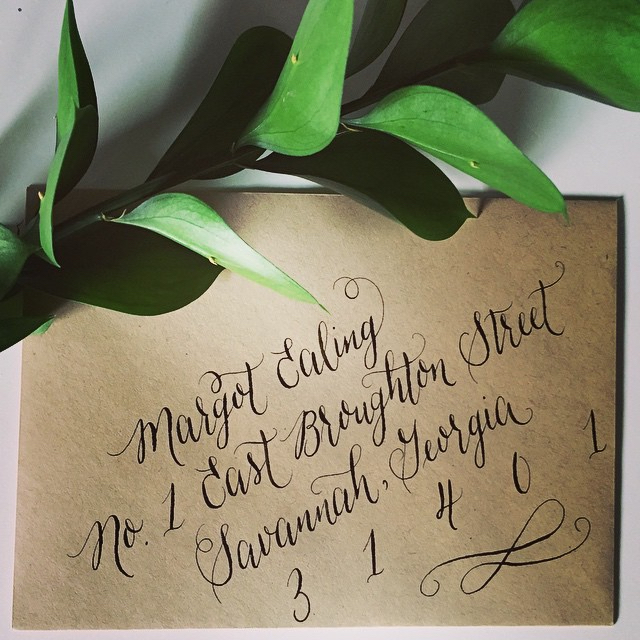 Margot Ealing
No. 1 East Broughton Street
Savannah, Georgia
3 1 4 0 1